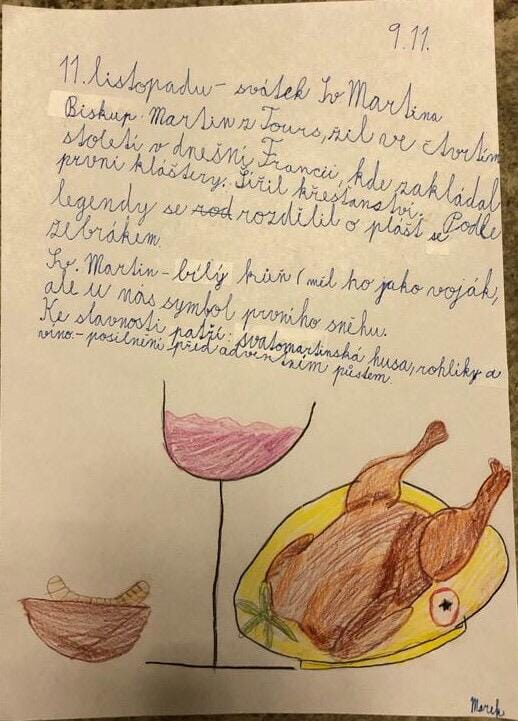 9.11.
11. listopadu - svátek Sv Martina
Biskup Martin z Tours, žil ve čtvrtém
století v dnešní Francii, kde zakládal
první kláštery. Šířil křesťanství. Podle
legendy se rod rozdělil o plášť se
žebrákem.
Sv. Martin - bílý kůň (měl ho jako voják,
ale u nás symbol prvního sněhu.
Ke slavnosti patří: svatomartinská husa, rohlíky a
víno. - posilnění před adventním půstem.
Marek